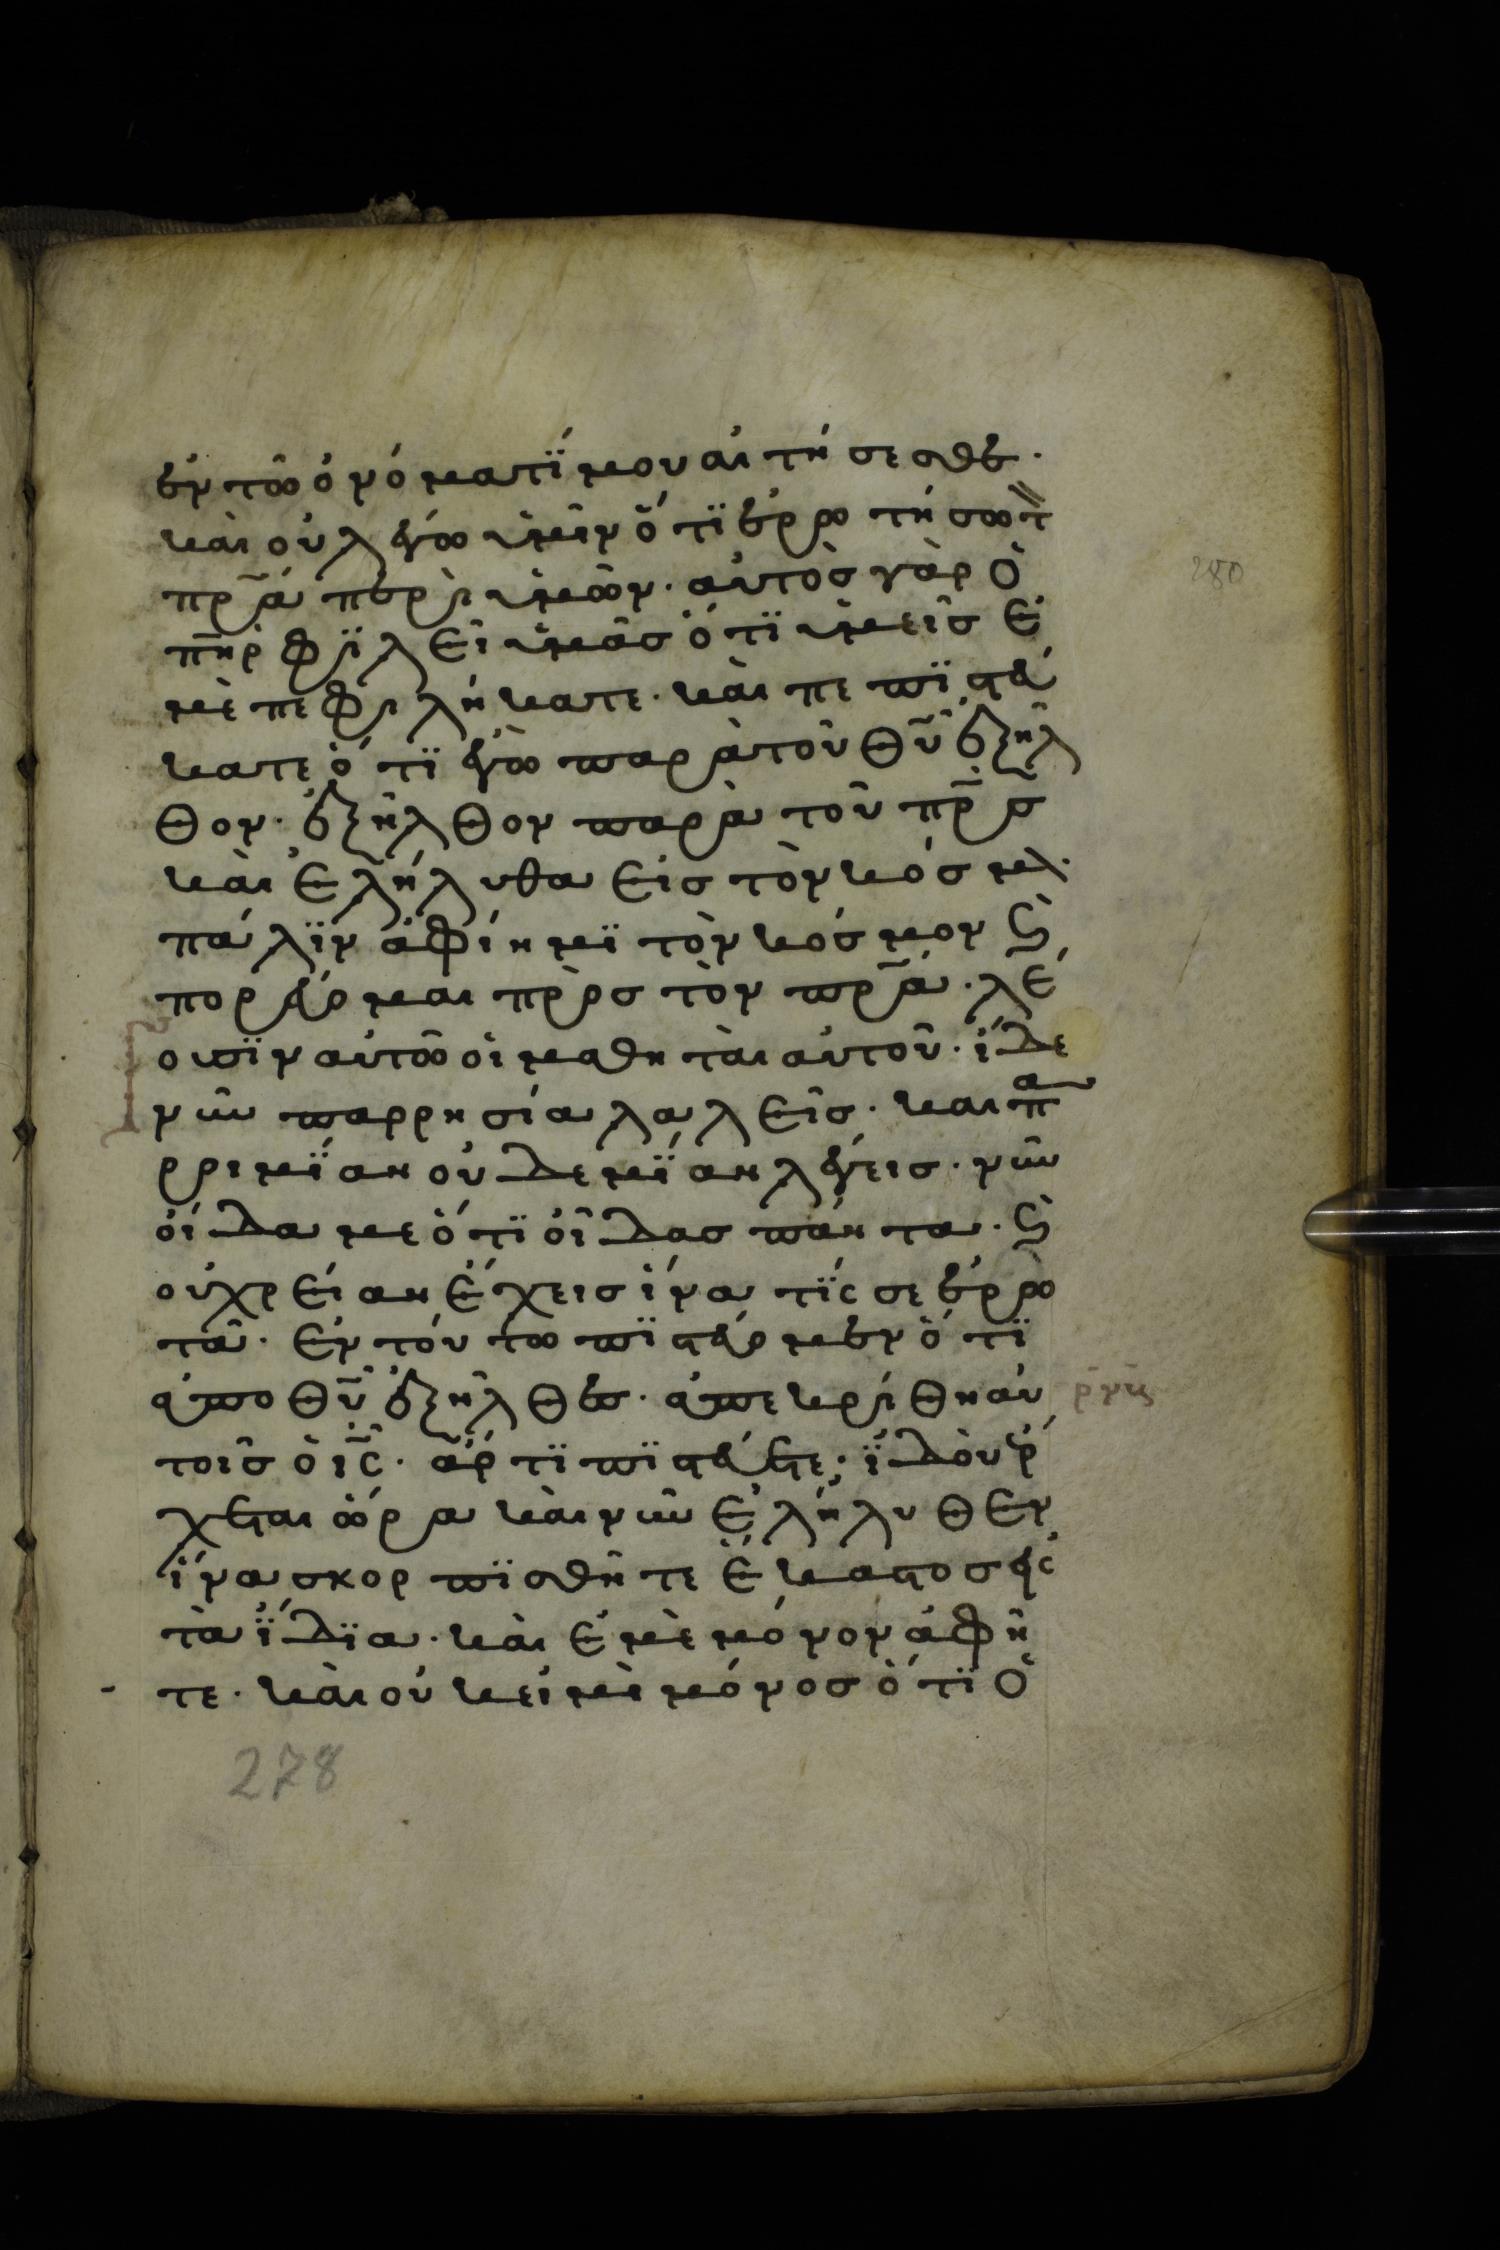 ἐν τῶ ὀνόματϊ μου αἰτήσεσθε·
καὶ οὐ λέγω ὑμῖν ὅτϊ ἐρωτήσω τ̀
πρ̅α περὶ ὑμῶν· αὐτὸσ γὰρ ὁ
πη̅ρ φϊλεῖ ὑμᾶσ ὅτϊ ὑμεῖσ ἐ
μὲ πεφιλήκατε· καὶ πεπϊστεύ
κατε ὅτϊ ἐγὼ παρὰ τοῦ θυ̅ ἐξῆλ
θον· ἐξῆλθον παρὰ τοῦ πρ̅σ
καὶ ἐλήλυθα εἰσ τὸν κόσμὸ·
πάλϊν ἀφίημϊ τὸν κόσμον ϗ
πορεύομαι πρὸσ τὸν πρ̅α· λέ
ουσϊν αὐτῶ οἱ μαθηταὶ αὐτοῦ· ἴδε
νῦν παρρησία λαλεῖσ· και πα
ροιμϊαν οὐδεμϊαν λέγεισ· νῦν
οἴδαμε ὅτϊ οἶδασ πάντα· ϗ
οὐ χρείαν ἔχεισ ἵνα τϊσ σε ἐρω
τᾶ· ἐν τούτω πϊστεύομεν ὅτϊ
ἀπο θυ̅ ἐξῆλθεσ· ἀπεκρίθη αὐ
τοῖσ ὁ ισ̅· ἄρτϊ πϊστεύετε; ϊδοὺ ἔρ
χεται ὥρα καὶ νῦν ἐλήλυθεν
ἵνα σκορπϊσθῆτε ἕκαστοσ εἰσ
τὰ ϊδϊα· καὶ ἐμὲ μόνον ἀφῆ
τε· καὶ οὐκ εἰμὶ μόνοσ ὅτϊ ὁ
278
280